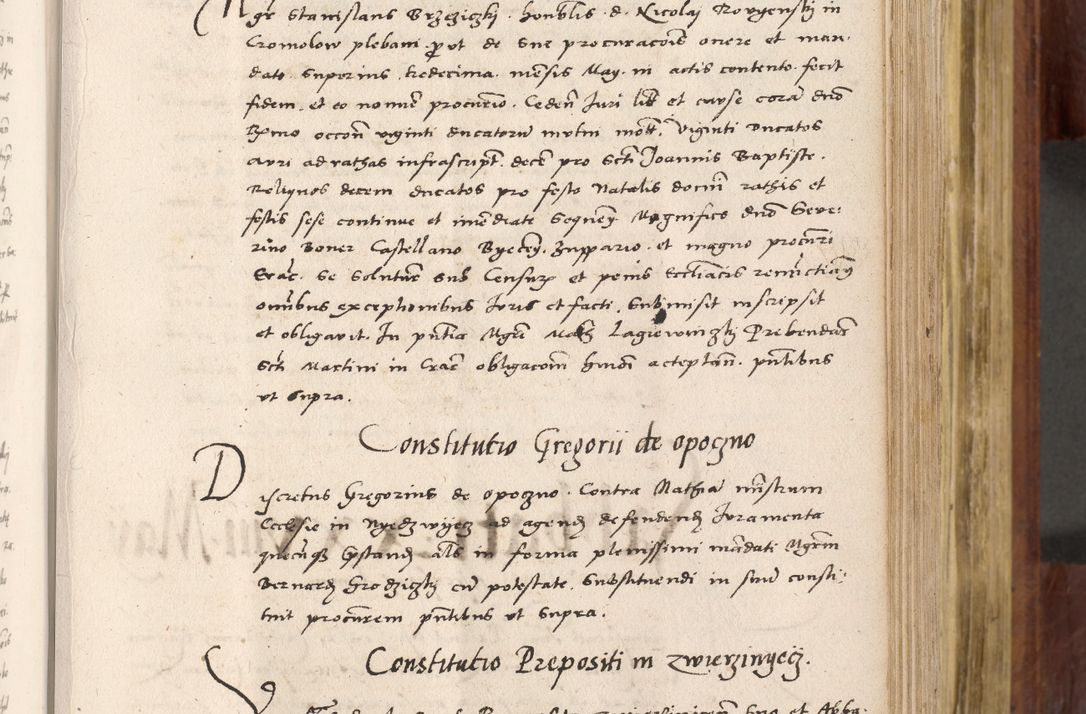 Mgr Stanislaus Brzeziczkj. honblis. d. Nicolaj Rovgenskj in
Cromolow plebani. prout de sue procuracois onere et man-
dato superius. tredecima. mensis May. in actis contento. fecit
fidem. et eo nomine procurio. Ceden Juri liti et cause cora dno
Ipmo occon viginti ducatoru mutui mott. Viginti Ducatos
auri ad rathas infrascript. dece pro Scti Joannis Baptiste.
Reliquos decem ducatos pro festo Natalis domi rathis et
festis sese continue et imediate sequen Magnifico dno Seve:
rino Boner Castellano Byecen. Zuppario. et magno procuri
Crac. se soluturu sub Censuris et penis Eccliacis remictian
omibus exceptionibus Juris et facti. submisit inscripsit
et obligavit. In pntia Mgri Lagiewniczkj Prebendarii
Scti Martini in Crac obligacom hmoi acceptan. pntibus
ut supra.
Constitutio Gregorii de opoczno
Discretus Gregorius de opoczno. Contra Mathia mistrum
Ecclesie in Nyedzwijecz ad agend defendend Juramenta
quecuqz prestand als in forma plenissimi madati Mgrm
Bernard Grodziczkj cu potestate. Substituendi in suu consti:
tuit procurem pntibus ut supra.
Constitutio Prepositi in zwierzinyecz.